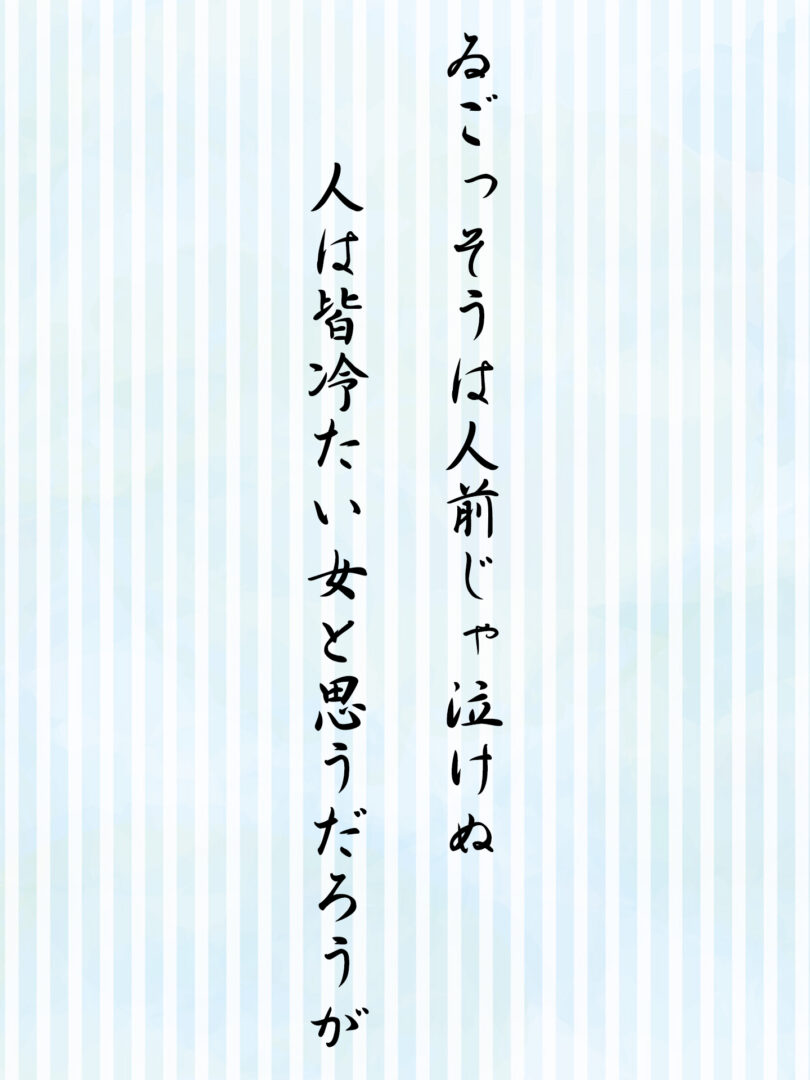 ゐごっそうは人前じゃ泣けぬ
人は皆冷たい女と思うだろうが